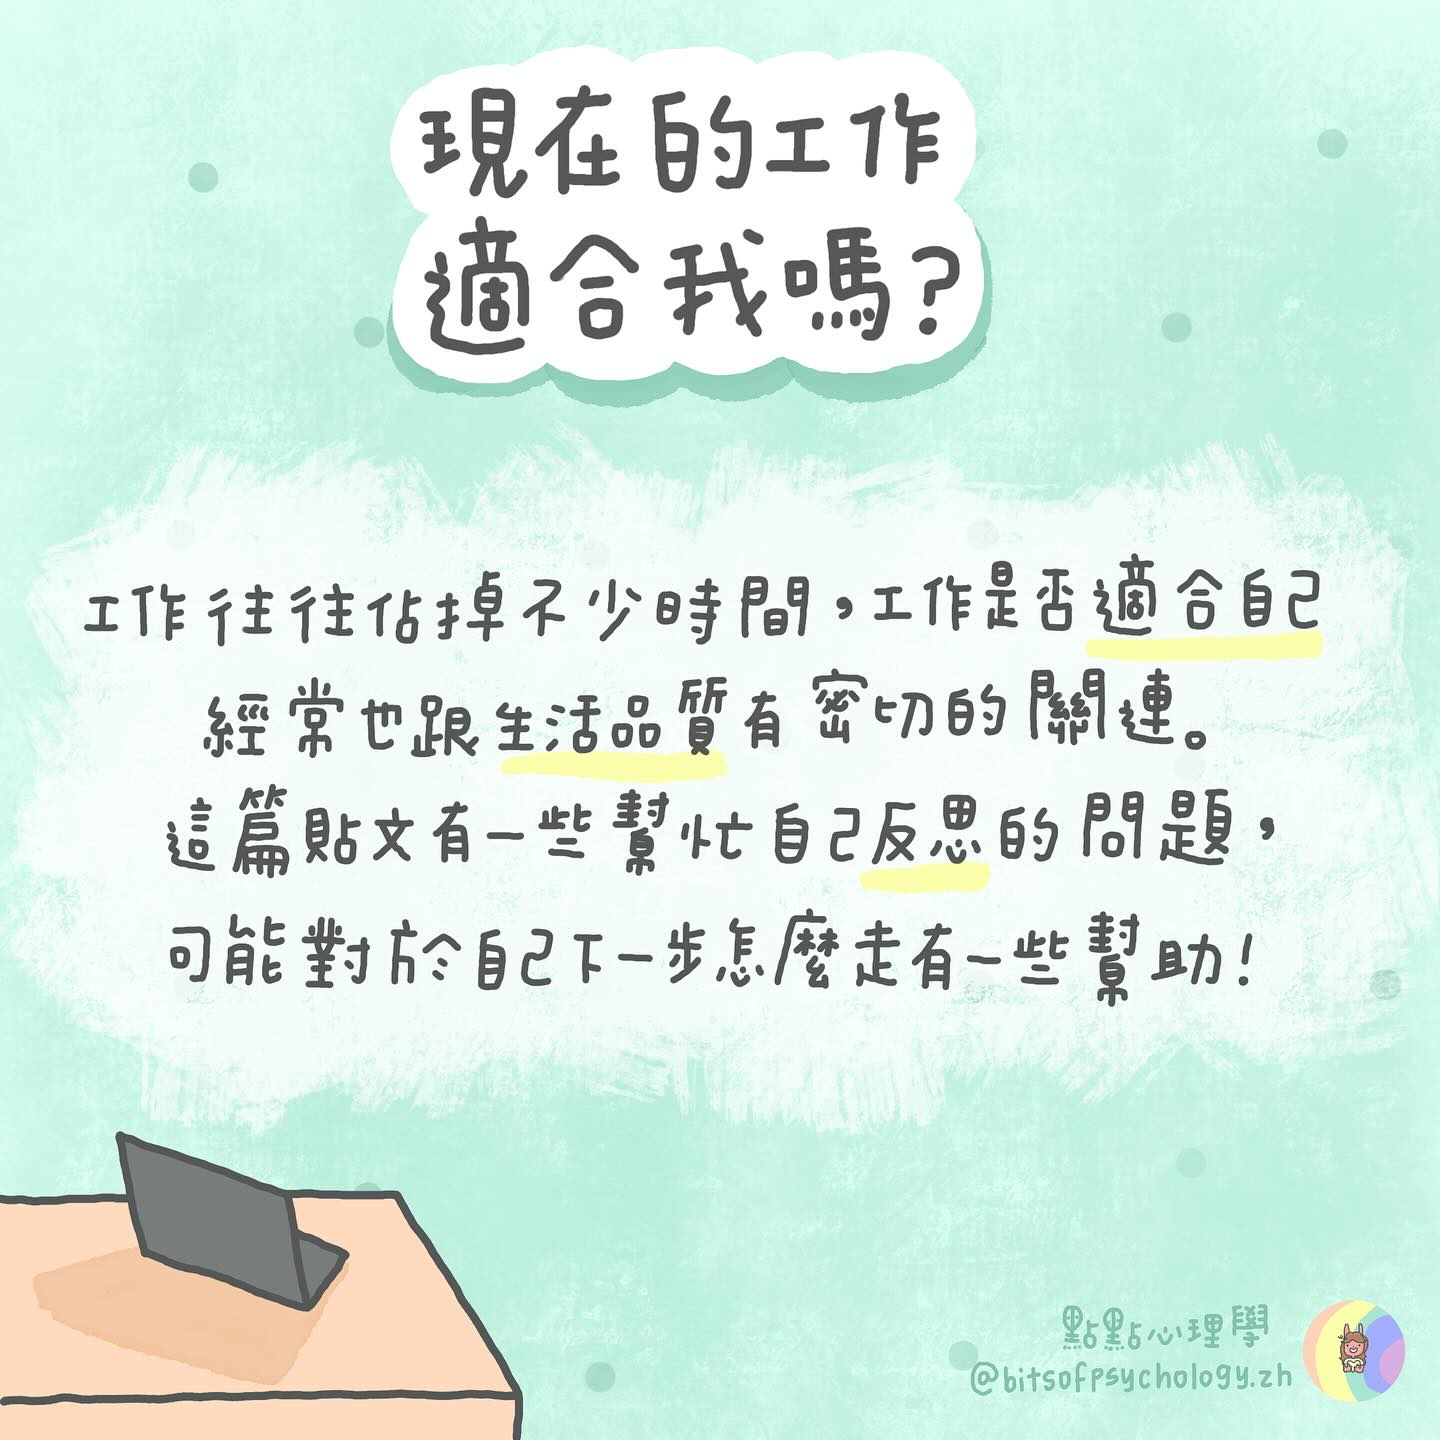 現在的工作
適合我嗎?
工作往往佔掉不少時間，工作是否適合自己
經常也跟生活品質有密切的關連。
這篇貼文有一些幫忙自己反思的問題，
可能對於自己下一步怎麼走有一些幫助!
點點心理學
@bitsofpsychology.zh